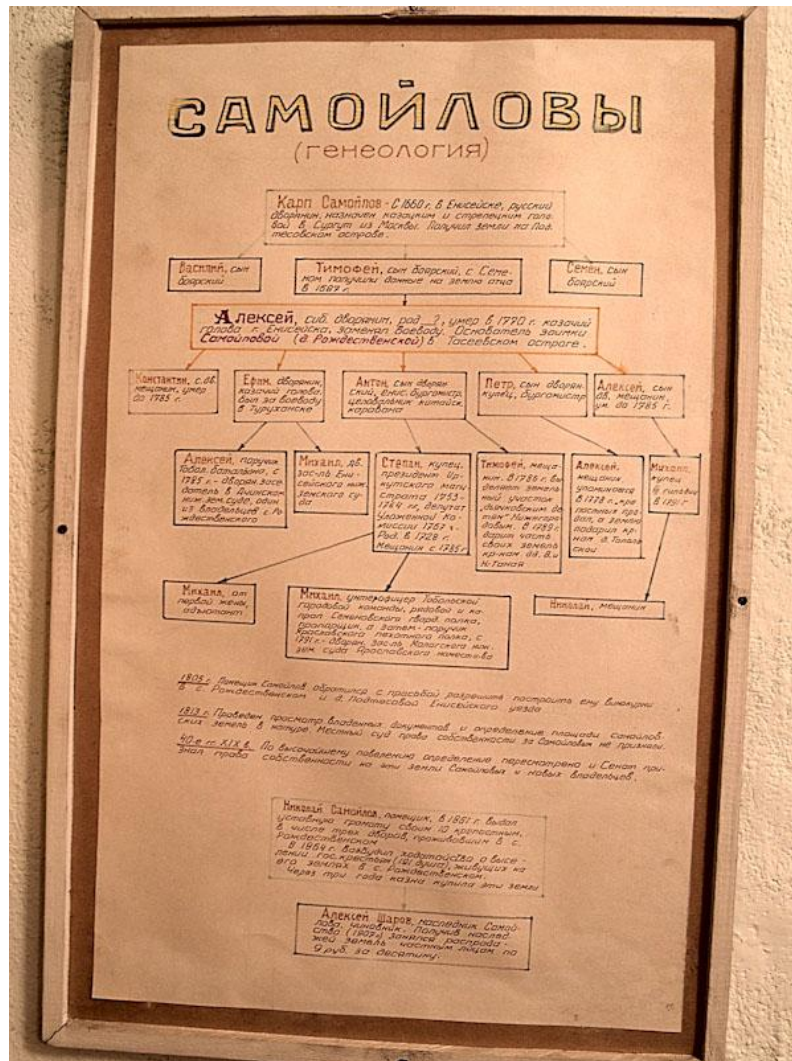 САМОЙЛОВЫ
(генеология)
Карп Самойлов - С 1660 г. в Енисейске, русский
дворянин, назначен казацким и стрелецким голо-
вой в Сургут из Москвы. Получил земли на Под-
тёсовском острове.
Василий, сын
боярский
Тимофей, сын боярский, с Семе-
ном получили данные на землю отца
в 1687 г.
Семен, сын
боярский
Алексей, сиб. дворянин, род. ?, умер в 1770 г. казачий
голова г. Енисейска, заменял воеводу. Основатель заимки
Самойловой (д. Рождественской) в Тасеевском остроге.
Константин, с. дв.
мещанин, умер
до 1785 г.
Ефим, дворянин,
казачий голова,
был за воеводу
в Туруханске
Антон, сын дворян
ский, енис. бургомистр,
целовальник китайск.
каравана
Петр, сын дворян.
купец, бургомистр
Алексей, сын
дв. мещанин,
ум. до 1785 г.
Алексей, поручик
Тобол. батальона, с
1785 г. - дворян. засе-
датель в Ачинском
ниж. зем. суде, один
из владельцев с. Ро-
ждественского
Михаил, дв.
зас-ль Ени-
сейского ниж.
земского су-
да
Степан, купец,
президент Ир-
кутского маги-
страта 1753-
1764 гг., депутат
Уложенной Ко-
миссии 1767 г.
Род. в 1728 г.
Мещанин с 1785 г.
Тимофей, меща-
нин. В 1786 г. вы-
деляет земельный
участок
"дьячковским де-
тям" Нижегоро-
довым. В 1789 г.
дарит часть
своих земель
кр-нам дд. В. и
Н. Танай
Алексей,
мещанин
упоминается
в 1778 г., кре-
постных про-
дал, а землю
подарил кр-
нам д.
Михаил,
купец
гильдии
в 1791 г.
Михаил, от
первой жены,
адъютант
Михаил, унтерофицер Тобольской
городовой команды, рядовой и ка-
прал Семеновского гвард. полка,
прапорщик, а затем - поручик
пехотного полка, с
1791 г. - дворян. зас-ль ниж.
зем. суда Ярославского наместн-ва
Николай, мещанин
1805 г. Помещик Самойлов обратился с просьбой разрешить построить ему винокурни
в с. Рождественском и д. Подтесовой Енисейского уезда
1813 г. Проведен просмотр владенных документов и определение площади самойлов-
ских земель в натуре. Местный суд права собственности за Самойловым не признали.
40-е гг. XIX в. По высочайшему повелению определение пересмотрено и Сенат при-
знал права собственности на эти земли Самойловых и новых владельцев.
Николай Самойлов, помещик, в 1861 г. выдал
уставную грамоту своим 10 крепостным,
в числе трех дворов, проживавшим в с.
Рождественском
В 1864 г. возбудил ходатайство о высе-
лении гос. крестьян (121 душа), живущих на
его землях в с. Рождественском.
Через три года казна купила эти земли
Алексей Шаров, наследник Самой-
лова, чиновник. Получив наслед-
ство (1907 г.) занялся распрода-
жей земель частным лицам по
9 руб. за десятину.